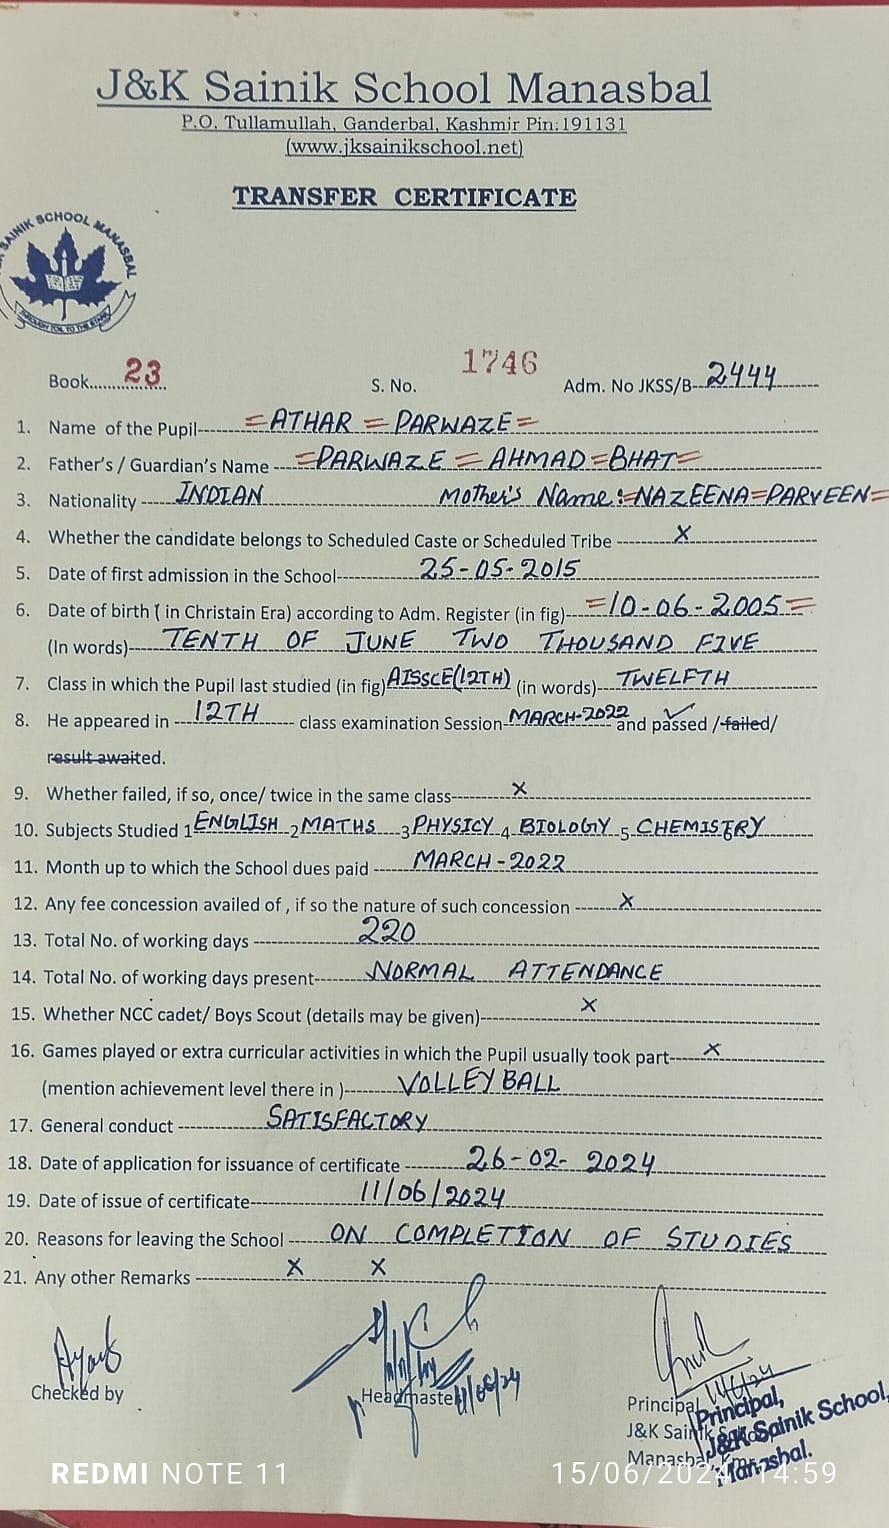 J&K Sainik School Manasbal
P.O. Tullamullah, Ganderbal, Kashmir Pin:191131
(www.jksainikschool.net)
TRANSFER CERTIFICATE
SAINIK SCHOOL MANASBAL
THROUGH TOIL TO THE STARS
Book...... 23 S. No. 1746 Adm. No JKSS/B-- 2444
1. Name of the Pupil------ =ATHAR = PARWAZE=
2. Father's / Guardian's Name ---- =PARWAZE = AHMAD=BHAT=
3. Nationality ----- INDIAN Mother's Name:=NAZEENA=PARVEEN=
4. Whether the candidate belongs to Scheduled Caste or Scheduled Tribe -------- X
5. Date of first admission in the School------------ 25-05-2015
6. Date of birth ( in Christain Era) according to Adm. Register (in fig)--- =10-06-2005=
(In words)---- TENTH OF JUNE TWO THOUSAND FIVE
7. Class in which the Pupil last studied (in fig) AISSCE(12TH) (in words)--- TWELFTH
8. He appeared in --- 12TH ------ class examination Session- MARCH-2022 and passed /failed/
result awaited.
9. Whether failed, if so, once/ twice in the same class-------- X
10. Subjects Studied 1 ENGLISH 2 MATHS 3 PHYSICY 4 BIOLOGY 5 CHEMISTRY
11. Month up to which the School dues paid ------ MARCH-2022
12. Any fee concession availed of , if so the nature of such concession ------ X
13. Total No. of working days --------------- 220
14. Total No. of working days present------ NORMAL ATTENDANCE
15. Whether NCC cadet/ Boys Scout (details may be given)-------------- X
16. Games played or extra curricular activities in which the Pupil usually took part----- X
(mention achievement level there in )------- VOLLEYBALL
17. General conduct ------------- SATISFACTORY
18. Date of application for issuance of certificate -------- 26-02-2024
19. Date of issue of certificate--------------- 11/06/2024
20. Reasons for leaving the School ----- ON COMPLETION OF STUDIES
21. Any other Remarks ------------- X X
Checked by Headmaster 11/06/24 Principal 11/6/24
J&K Sainik
Manasbal
Principal,
J&K Sainik School,
Manasbal.
REDMI NOTE 11 15/06/2024 14:59